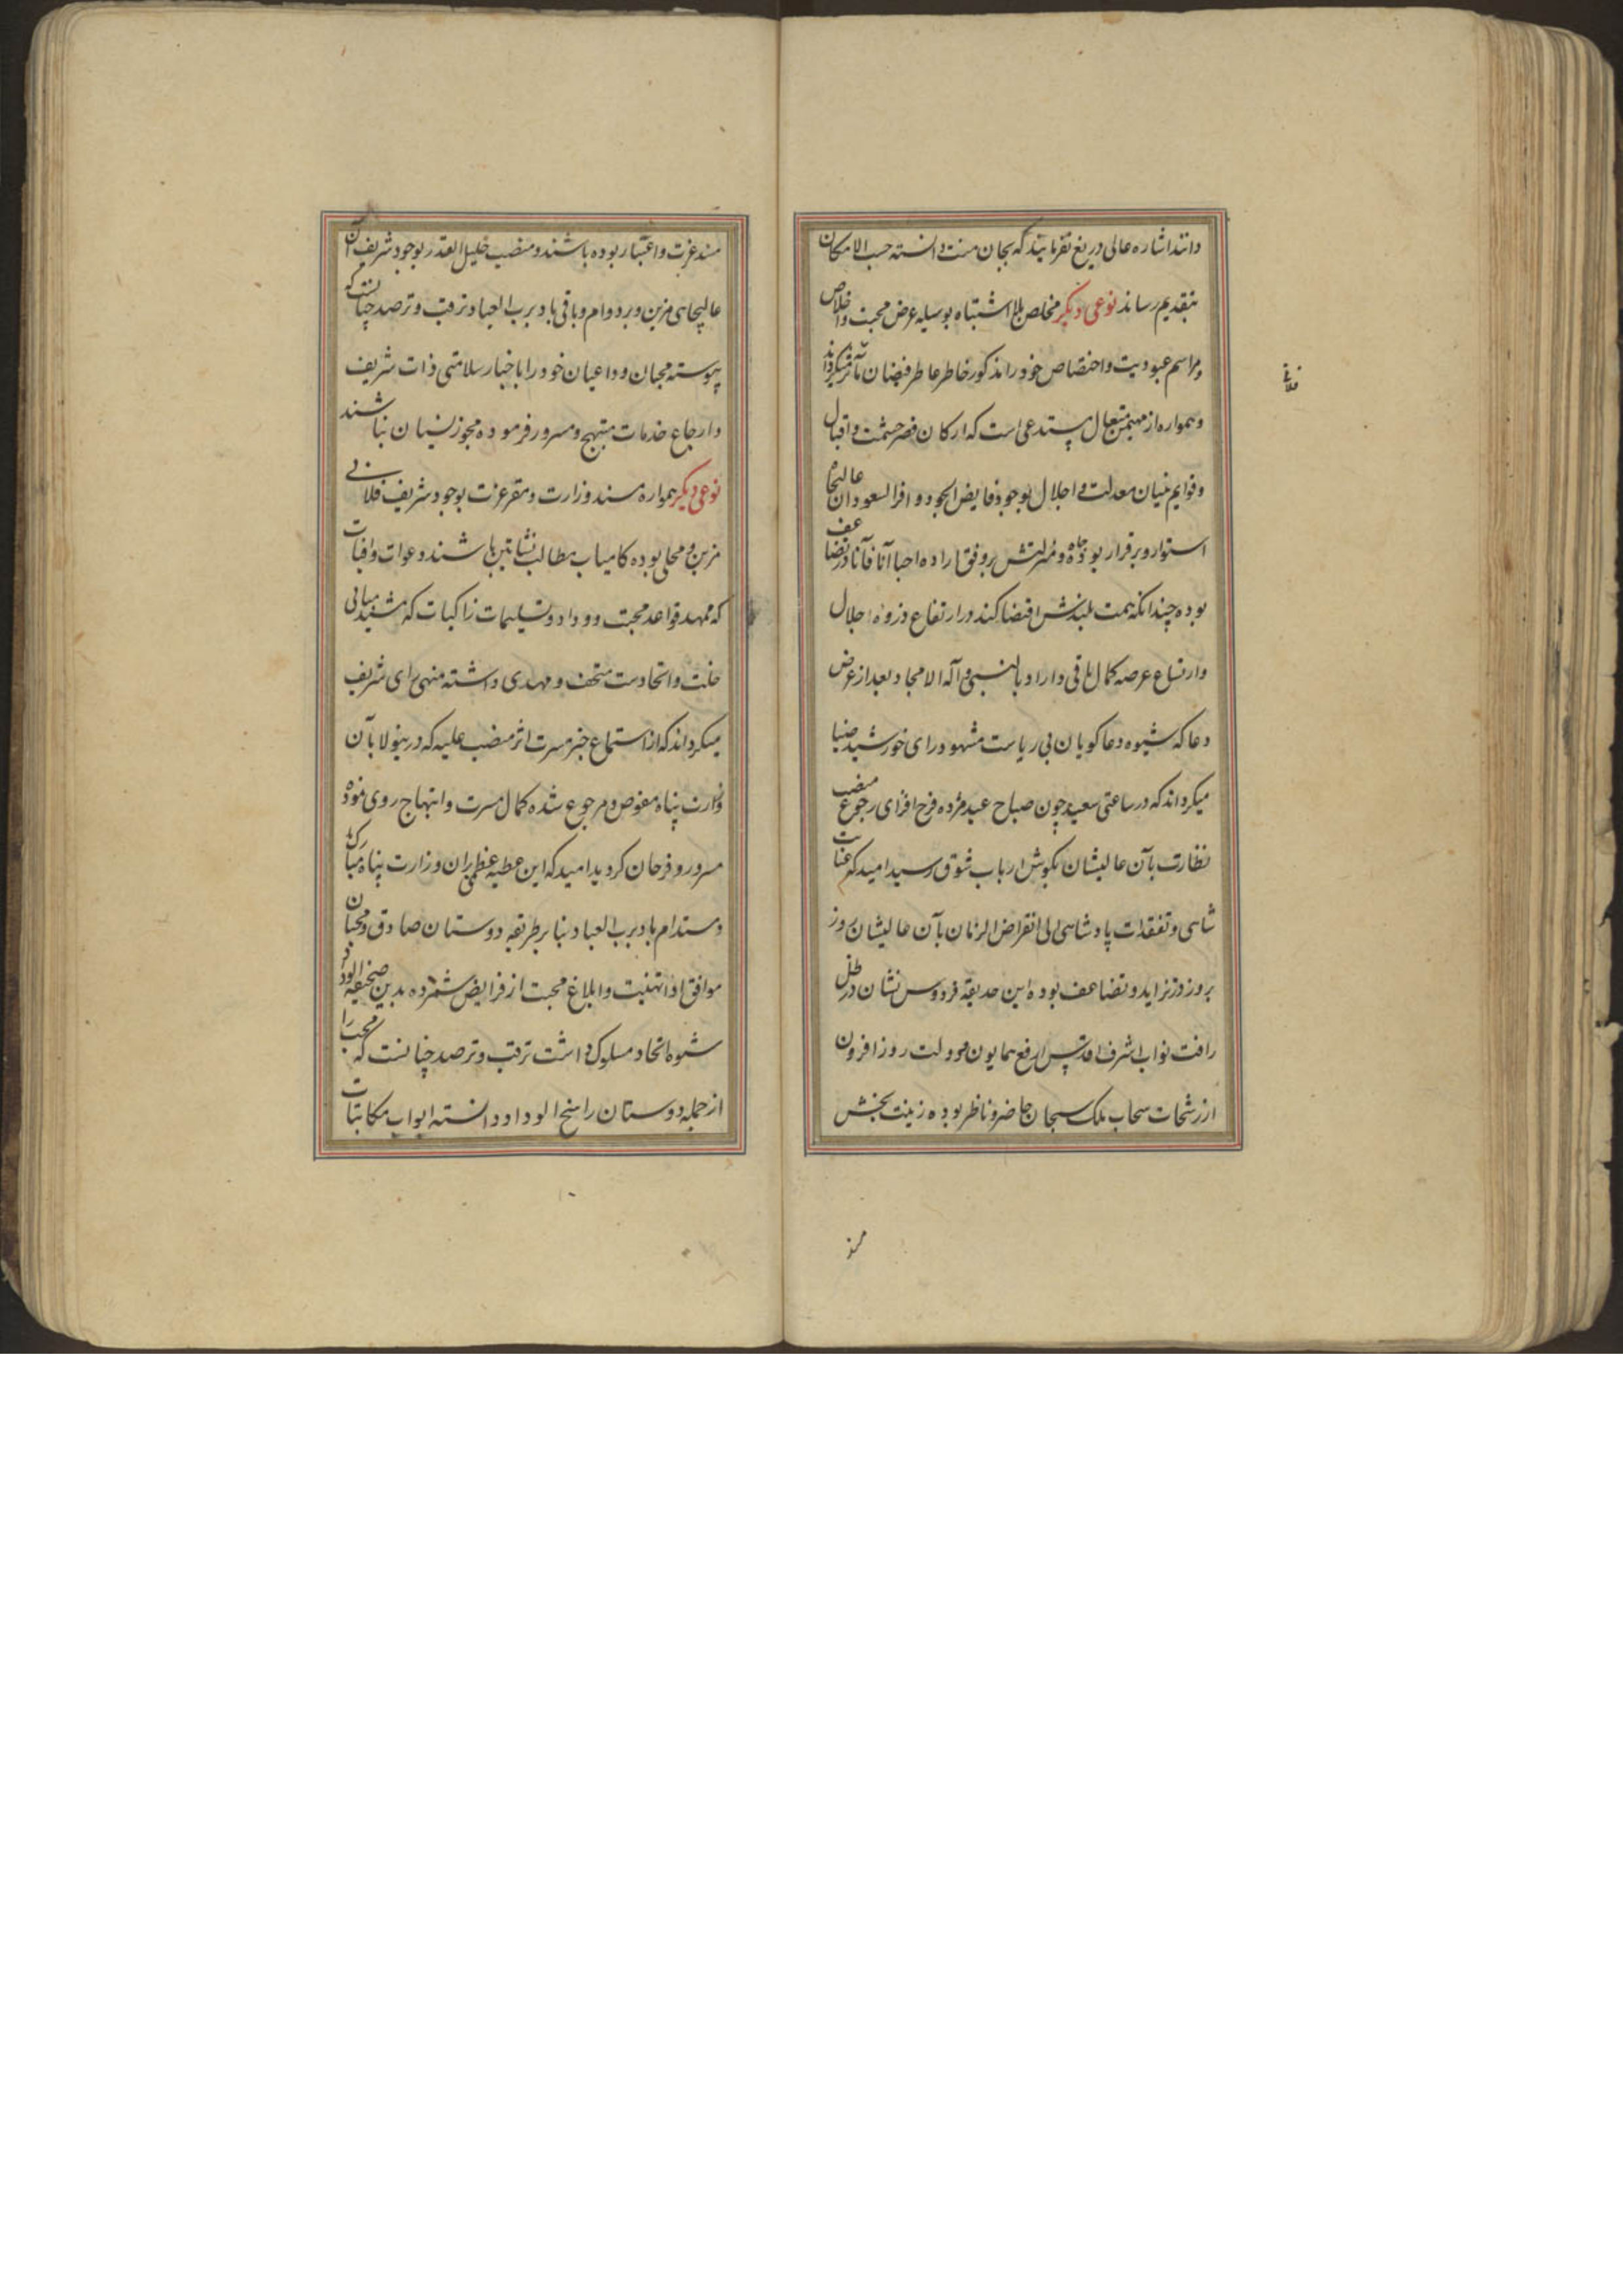 دانند اشاره عالی دریغ نفرمایند که بجان منت دانسته حسب الامکان
بتقدیم رساند نوعی دیگر مخلص بلا اشتباه بوسیله عرض محبت و اخلاص
و مراسم عبودیت و اختصاص خود را مذکور خاطر عاطر فیضان مآثر میگرداند
و همواره از مهیمن متعال مستدعی است که ارکان قصر حشمت و اقبال
و قوایم بنیان معدلت و اجلال بوجود فایض الجود وافر السعود آن عالیجاه
استوار و برقرار بوده جاه و منزلتش بر وفق اراده احبا آنا فآنا در تضاعف
بوده چندانکه همت بلندش اقتضا کند در ارتفاع ذروه اجلال
و اتساع عرصه کمال باقی داراد بالنبی و آله الامجاد بعد از عرض
دعا که شیوه دعاگویان بی ریاست مشهود رای خورشید ضیا
میگرداند که در ساعتی سعید چون صباح عید مژده فرح افزای رجوع منصب
نظارت بآن عالیشان بگوش ارباب شوق رسید امید که عنایت
شاهی و تفقدات پادشاهی الی انقراض الزمان بآن عالیشان روز
بروز در تزاید و تضاعف بوده این حدیقه فردوس نشان در ظل
رافت نواب اشرف اقدس ارفع همایون و دولت روز افزون
از رشحات سحاب ملک سبحان حاضر و ناظر بوده زینت بخش
مسند
مسند عزت و اعتبار بوده باشند و منصب جلیل القدر بوجود شریف آن
عالیجاهی مزین و بر دوام و باقی باد برب العباد ترقب و ترصد چنانست که
پیوسته محبان و داعیان خود را باخبار سلامتی ذات شریف
و ارجاع خدمات مبتهج و مسرور فرموده مجوز نسیان نباشند
نوعی دیگر همواره مسند وزارت و مقر عزت بوجود شریف فلانی
مزین و محلی بوده کامیاب مطالب نشاتین باشند دعوات وافیات
که ممهد قواعد محبت و وداد و تسلیمات زاکیات که مشید مبانی
خلت و اتحادست متحف و مهدی داشته منهی رای شریف
میگرداند که از استماع خبر مسرت اثر منصب علیه که درینولا بآن
وزارت پناه مفوض و مرجوع شده کمال مسرت و ابتهاج روی نموده
مسرور و فرحان گردید امید که این عطیه عظمی بر آن وزارت پناه مبارک
و مستدام باد برب العباد بنا بر طریقه دوستان صادق و محبان
موافق ادا تهنیت و ابلاغ محبت از فرایض شمرده بدین صحیفه الوداد
شیوه اتحاد مسلوک داشت ترقب و ترصد چنانست که محب را
از جمله دوستان راسخ الوداد دانسته ابواب مکاتبات